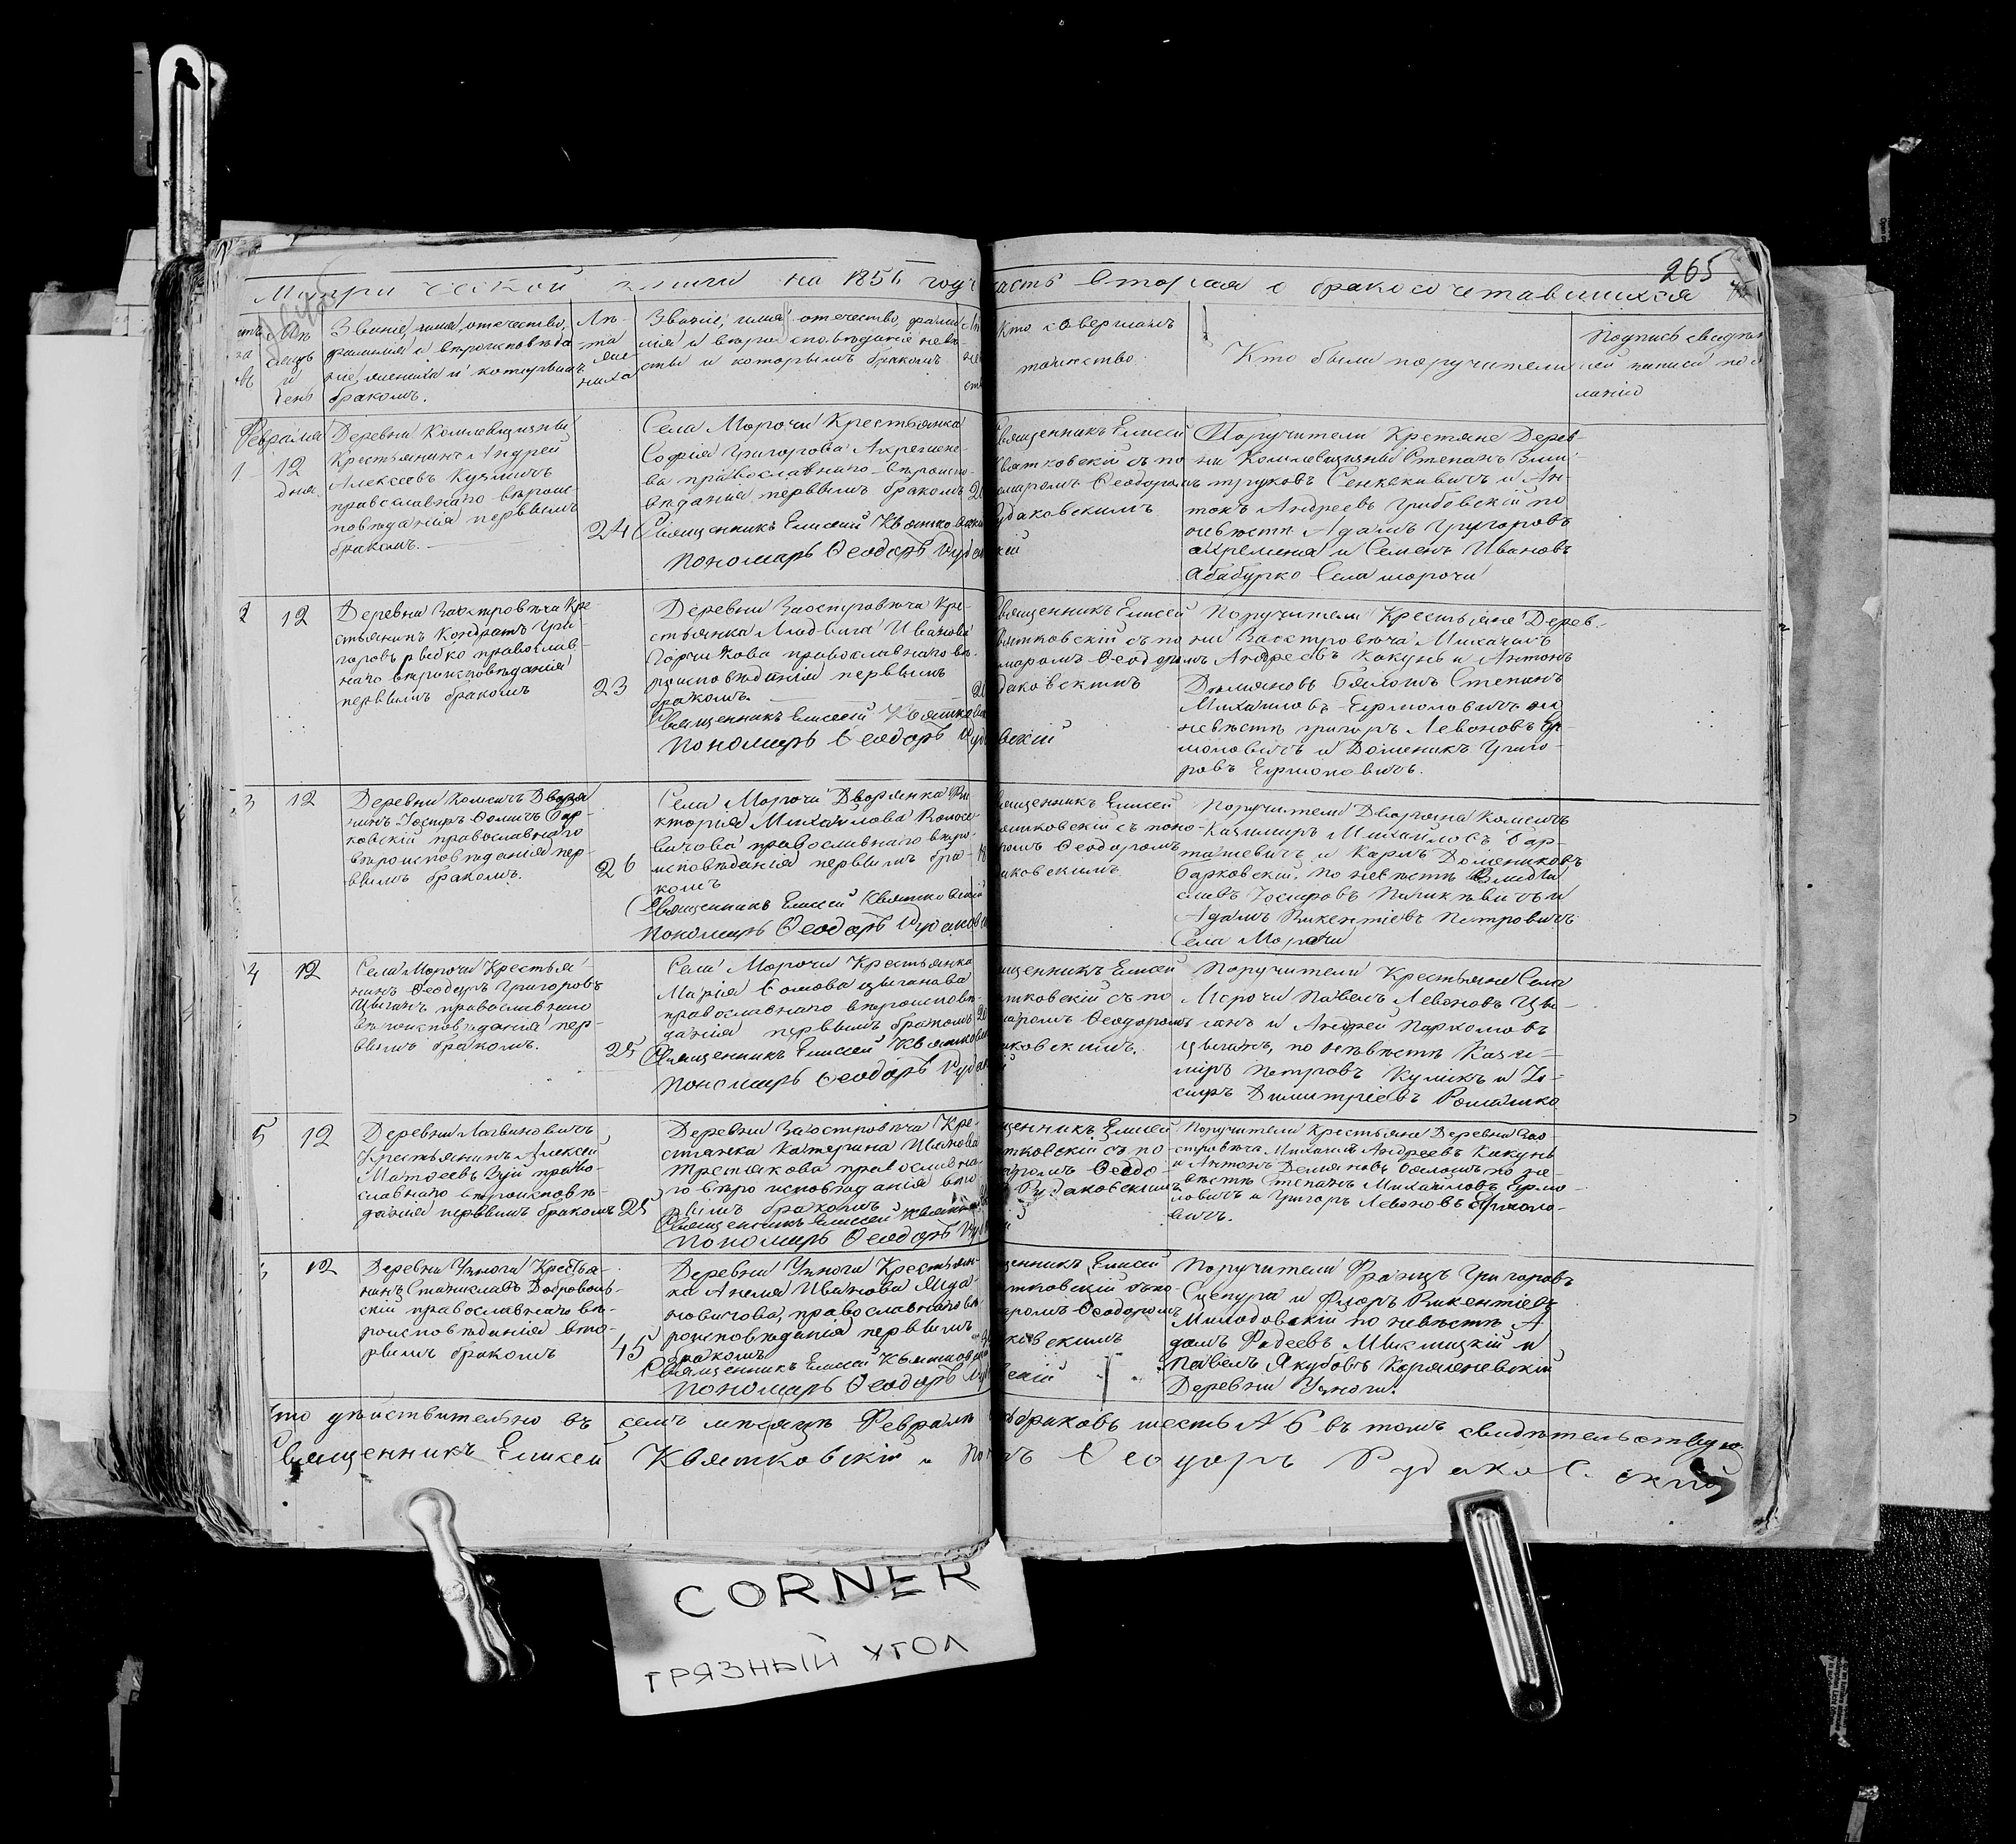 265
Метрической книги на 1856 годъ часть вторая о бракосочетавшихся
Мѣ-
сяцъ
и
день
Званіе, имя, отечество,
фамилія и вѣроисповѣда
ніе жениха и которымъ
бракомъ.
Лѣ-
та
же
ниха
Званіе, имя отечество фами
лія и вѣроисповѣданіе невѣ
сты и которымъ бракомъ
Кто совершалъ
таинство
Кто были поручители
Подпись свидѣте
лей записи по же
ланію
Февраля
1
12
дня
Деревни
Крестьянинъ Андрей
Алексѣевъ Кузмичъ
православнаго вѣроис
повѣданія первымъ
бракомъ.
24
Села Морочи Крестьянка
Софія Григорова Ахремене-
ва православнаго вѣроиспо-
вѣданія первымъ бракомъ 20
Священникъ Елисей Квятковскій
Пономарь Ѳеодоръ Рудаковскій
Священникъ Елисей
Квятковскій съ по
номаромъ Ѳеодоромъ
Рудаковскимъ
Поручители Крестяне Дерев-
ни Степанъ Дми-
труковъ Сенкевичъ и Ан-
тонъ Андреевъ Грибовскій по
невѣстѣ Адамъ Григоровъ
Ахременя и Семенъ Ивановъ
Абабурко Села Морочи
2
12
Деревни Заостровѣча Кре
стьянинъ Кондратъ Гри
горовъ Рыско православ
наго вѣроисповѣданія
первымъ бракомъ
23
Деревни Заостровѣча Кре-
стьянка Людвига Иванова
православнаго вѣ-
роисповѣданія первымъ
бракомъ.
20
Священникъ Елисей Квятковскій
Пономарь Ѳеодоръ Рудаковскій
Священникъ Елисей
Квятковскій съ по
номаромъ Ѳеодоромъ
Рудаковскимъ
Поручители Крестьяне Дерев-
ни Заостровѣча Михаилъ
Андреевъ Какунь и Антонъ
Демяновъ Степанъ
Михаиловъ Ермоловичъ по
невѣстѣ Григоръ Левоновъ Ер-
моловичъ и Доменикъ Григо-
ровъ Ермоловичъ.
3
12
Деревни Комсичъ Дворя
нинъ Іосифъ Ѳомичъ Бар-
ковскій православнаго
вѣроисповѣданія пер-
вымъ бракомъ.
26
Села Морочи Дворянка Ви
кторія Михайлова
православнаго вѣро-
исповѣданія первымъ бра-
комъ
18
Священникъ Елисей Квятковскій
Пономарь Ѳеодоръ Рудаковскій
Священникъ Елисей
Квятковскій съ поно-
маромъ Ѳеодоромъ
Рудаковскимъ
Поручители Дворяне
Казимиръ Михайловъ Бар-
ташевичъ и Карлъ Домениковъ
Барковскій. по невѣстѣ
Іосифовъ и
Адамъ Викентіевъ Петровичъ
Села Морочи
4
12
Села Морочи Крестья
нинъ Ѳеодоръ Григоровъ
Цыганъ православнаго
вѣроисповѣданія пер-
вымъ бракомъ.
25
Села Морочи Крестьянка
Марія Ѳомова Цыганова
православнаго вѣроисповѣ-
данія первымъ бракомъ 20
Священникъ Елисей Квятковскій
Пономарь Ѳеодоръ Рудаковскій
Священникъ Елисей
Квятковскій съ по
номаромъ Ѳеодоромъ
Рудаковскимъ.
Поручители Крестьяне Села
Морочи Павелъ Левоновъ Цы-
ганъ и Андрей Пархомовъ
Цыганъ, по невѣстѣ Кази-
миръ Петровъ Куликъ и Іо-
сифъ Димитріевъ Ромашко
5
12
Деревни Лагвиновичъ
Крестьянинъ Алексѣй
Матѳеевъ Зуй право-
славнаго вѣроисповѣ-
данія первымъ бракомъ
25
Деревни Заостровѣча Кре-
стянка Катерина Иванова
Третякова православна-
го вѣроисповѣданія вто
рымъ бракомъ
Священникъ Елисей Квятковскій
Пономарь Ѳеодоръ Рудаковскій
Священникъ Елисей
Квятковскій съ по
номаромъ Ѳеодо-
Рудаковскимъ
Поручители Крестьяне Деревни Зао-
стровѣча Михаилъ Андреевъ Какунь
и Антонъ Демяновъ по не-
вѣстѣ Степанъ Михайловъ Ермо-
ловичъ и Григоръ Левоновъ Ермоло-
вичъ.
12
Деревни Узноги Крестья-
нинъ Станиславъ Доброволь-
скій православнаго вѣ-
роисповѣданія вто-
рымъ бракомъ
45
Деревни Узноги Крестьян-
ка Анеля Иванова
православнаго вѣ
роисповѣданія первымъ
бракомъ
Священникъ Елисей Квятковскій
Пономарь Ѳеодоръ Рудаковскій
Священникъ Елисей
Квятковскій съ по
номаромъ Ѳеодоромъ
Рудаковскимъ
Поручители Францъ Григоровъ
Сцепура и Викентіевъ
Милодовскій по невѣстѣ А
дамъ Фадеевъ и
Павелъ Якубовъ
Деревни Узноги.
Что дѣйствительно въ семъ мѣсяцѣ Февралѣ браковъ шесть № 6 въ томъ свидѣтельствуемъ
Священникъ Елисей Квятковскій и Пономарь Ѳеодоръ Рудаковскій
CORNER
ГРЯЗНЫЙ УГОЛ